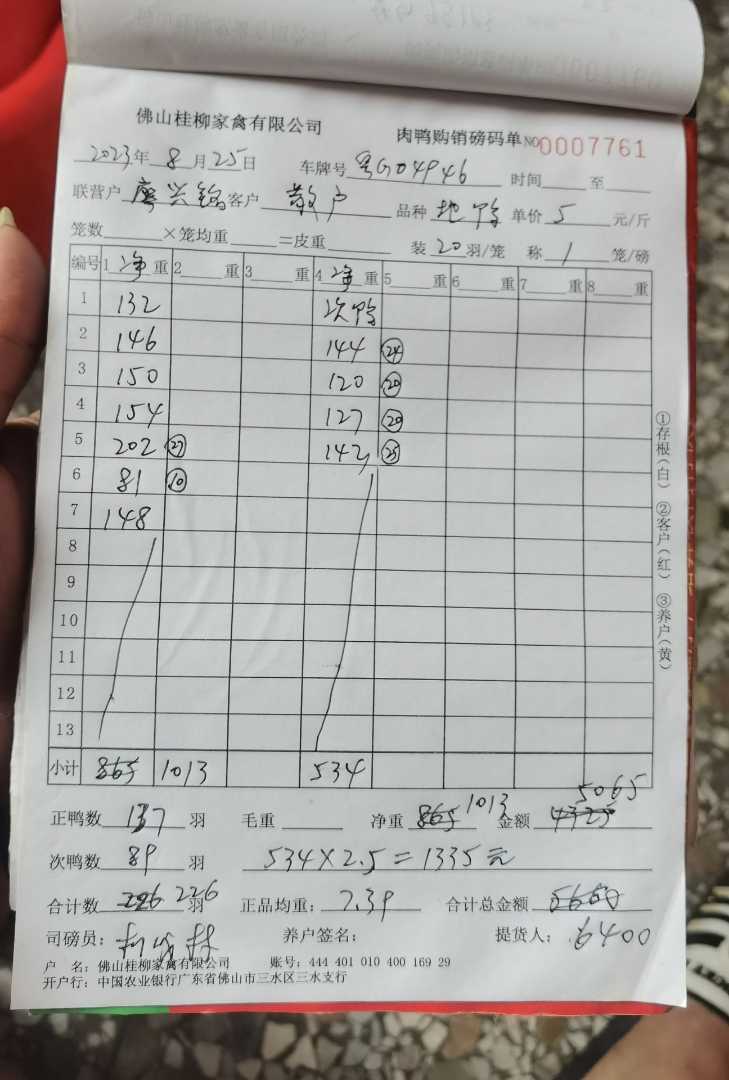 佛山桂柳家禽有限公司 肉鸭购销磅码单 NO 0007761
2023年 8 月 25 日 车牌号 粤G04946 时间 至
联营户 廖兴锦 客户 散户 品种 地鸭 单价 5 元/斤
笼数 ×笼均重 =皮重 装 20 羽/笼 称 1 笼/磅
编号 1 净 重 2 重 3 重 4 净 重 5 重 6 重 7 重 8 重
1 132 次鸭
2 146 144 24
3 150 120 20
4 154 127 20
5 202 27 142 25
6 81 10
7 148
8
9
10
11
12
13
小计 865 1013 534
正鸭数 137 羽 毛重 净重 865 1013 金额 4325 5065
次鸭数 89 羽 534×2.5=1335元
合计数 226 226 羽 正品均重: 7.39 合计总金额 5660
司磅员: 养户签名: 提货人: 6400
户 名: 佛山桂柳家禽有限公司 账号: 444 401 010 400 169 29
开户行: 中国农业银行广东省佛山市三水区三水支行
①存根(白) ②客户(红) ③养户(黄)